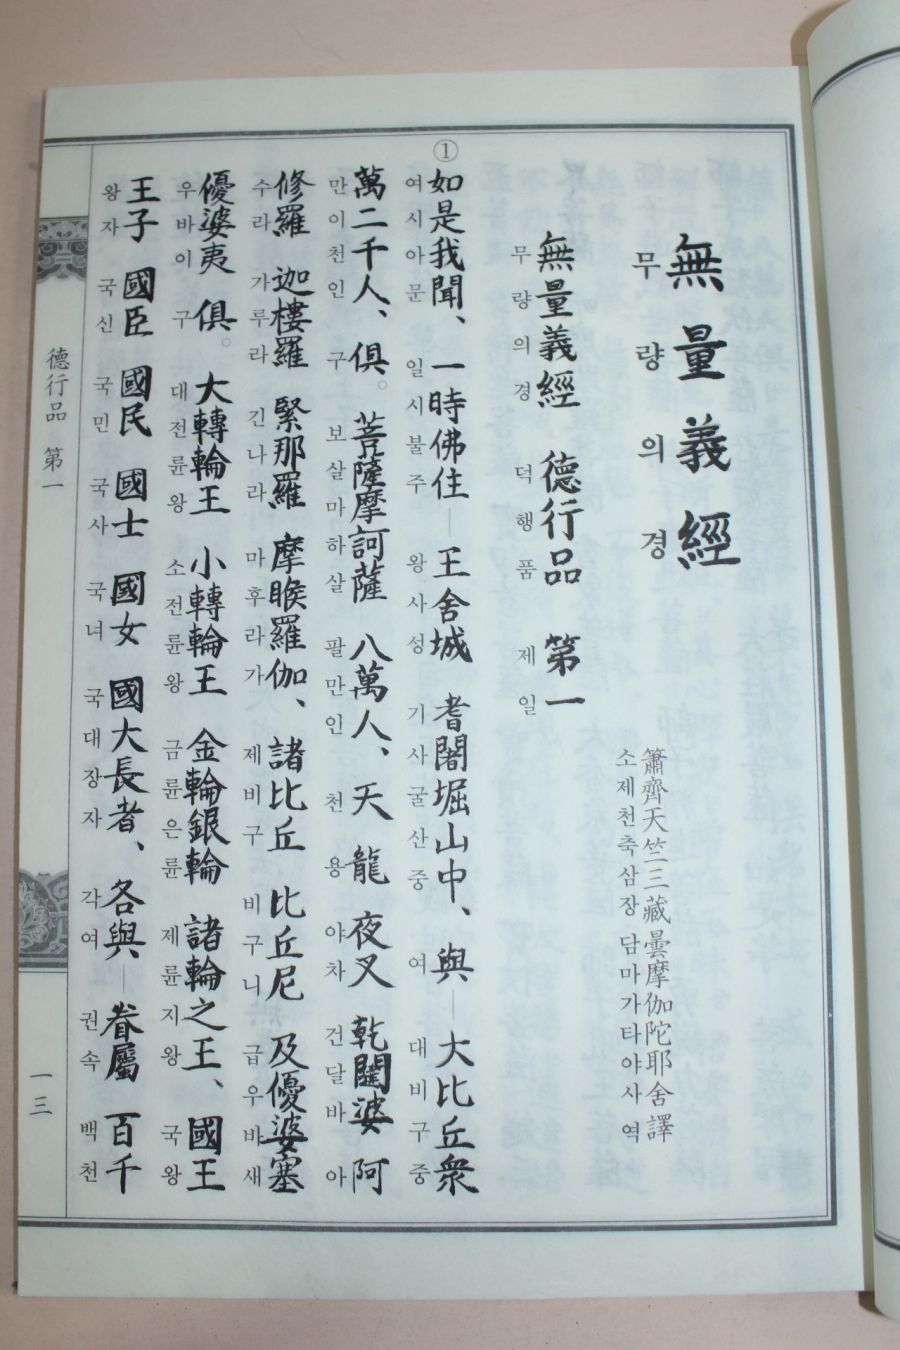 無量義經
무량의경
蕭齊天竺三藏曇摩伽陀耶舍譯
소제천축삼장담마가타야사역
無量義經 德行品 第一
무량의경 덕행품 제일
①
如是我聞、一時佛住—王舍城 耆闍堀山中、與—大比丘衆
여시아문 일시불주 왕사성 기사굴산중 여 대비구중
萬二千人、俱。菩薩摩訶薩 八萬人、天 龍 夜叉 乾闥婆 阿
만이천인 구 보살마하살 팔만인 천 용 야차 건달바 아
修羅 迦樓羅 緊那羅 摩睺羅伽、諸比丘 比丘尼 及優婆塞
수라 가루라 긴나라 마후라가 제비구 비구니 급우바새
優婆夷 俱。大轉輪王 小轉輪王 金輪銀輪 諸輪之王、國王
우바이 구 대전륜왕 소전륜왕 금륜은륜 제륜지왕 국왕
王子 國臣 國民 國士 國女 國大長者、各與—眷屬 百千
왕자 국신 국민 국사 국녀 국대장자 각여 권속 백천
德行品 第一
一三